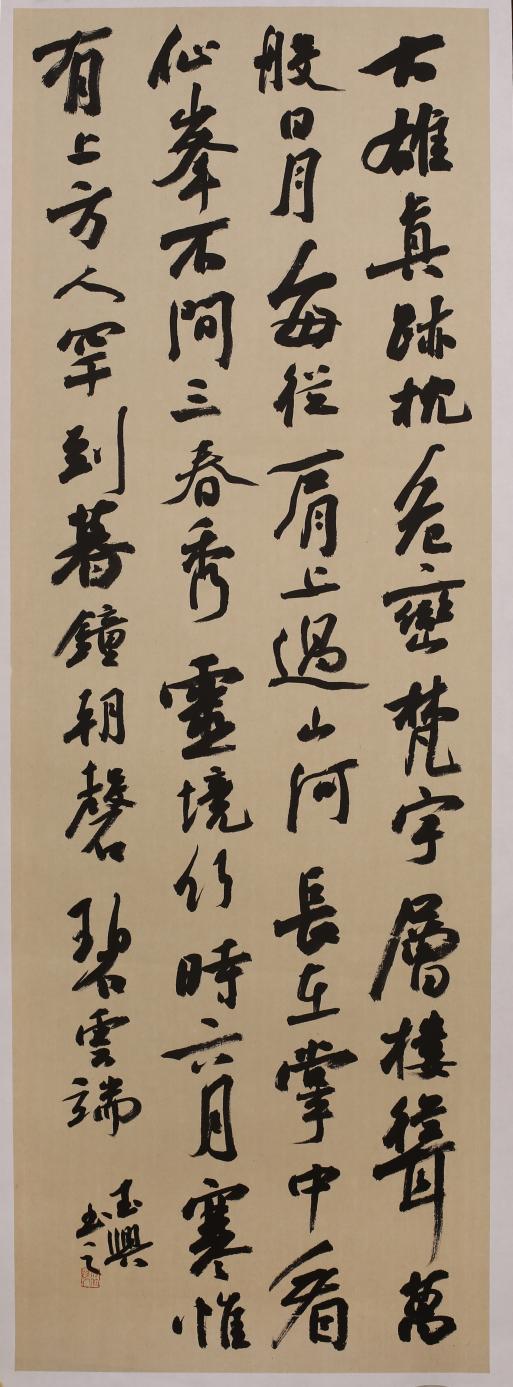 大雄眞跡枕危巒梵宇層樓聳萬
般日月每從肩上過山河長在掌中看
仙峯不間三春秀靈境何時六月寒惟
有上方人罕到暮鐘朝磬碧雲端
興
書之